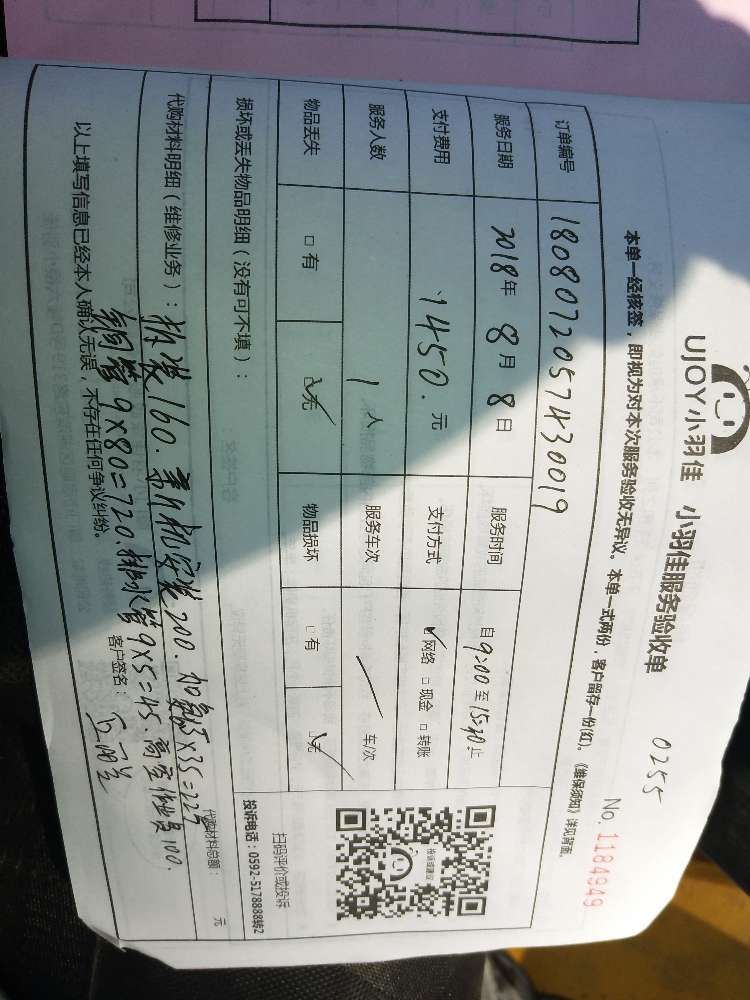 UJOY小羽佳 小羽佳服务验收单
0255
No. 1184949
本单一经核签，即视为对本次服务验收无异议。本单一式两份，客户留存一份(红)。《维保须知》详见背面。
订单编号 1808072057430019
服务日期 2018年 8月 8日 服务时间 自9:00至15:30止
支付费用 1450.元 支付方式 ☑网络 □现金 □转账
服务人数 1人 服务车次 / 车/次
物品丢失 □有 ☑无 物品损坏 □有 ☑无
扫码评价或投诉
投诉电话：0592-5178888转2
损坏或丢失物品明细（没有可不填）：
代购材料总额： 元
代购材料明细（维修业务）：拆装160.新机安装200.加氟 x35=225
铜管9x80=720.排水管9x5=45.高空作业费100.
以上填写信息已经本人确认无误，不存在任何争议纠纷。 客户签名：